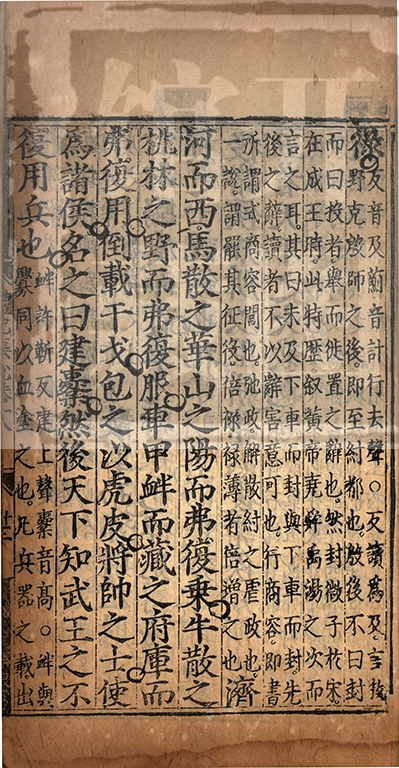 祿
反音及薊音計行去聲○反讀爲及言牧
野克殷師之後即至紂都也殷後不曰封
而曰投者舉而徙置之辭也然封微子於宋
在成王時此特歷叙黃帝堯舜禹湯之次而
言之耳其曰未及下車而封與下車而封先
後之辭讀者不以辭害意可也行商容即書
所謂式商容閭也弛政解散紂之虐政也
一說謂罷其征役倍祿祿薄者倍增之也
濟
河而西馬散之華山之陽而弗復乘牛散之
桃林之野而弗復服車甲衅而藏之府庫而
弗復用倒載干戈包之以虎皮將帥之士使
爲諸侯名之曰建櫜然後天下知武王之不
復用兵也
衅許靳反建上聲櫜音高○衅與
釁同以血塗之也凡兵器之載出